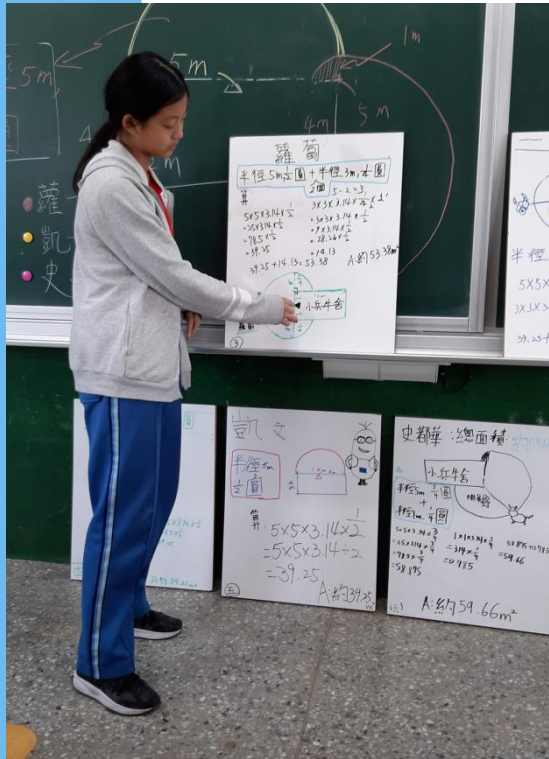 5m
1m
5m
4m
5m
蘿蔔
半徑5m,½圓+半徑3m,
圓
算:
5-2=3
5×5×3.14×½
=25×3.14×½
=78.5×½
=39.25
=3×3×3.14×½
=9×3.14×½
=28.26×½
=14.13
39.25+14.13=53.38
A:約53.38m²
小兵牛舍
蘿
凱
史
半徑
5×5×
3×3×3
39.25+
凱文
半徑5m
½圓
算:
5×5×3.14×½
=5×5×3.14÷2
=39.25
A:約39.25m²
A:約39.25m²
史都華:總面積:
小兵牛舍
半徑5m,¾圓
+
半徑1m,¼圓
5×5×3.14×¾
=25×3.14×¾
=78.5×¾
=58.875
1×1×3.14×¼
=3.14×¼
=0.785
=59.66
A:約59.66m²